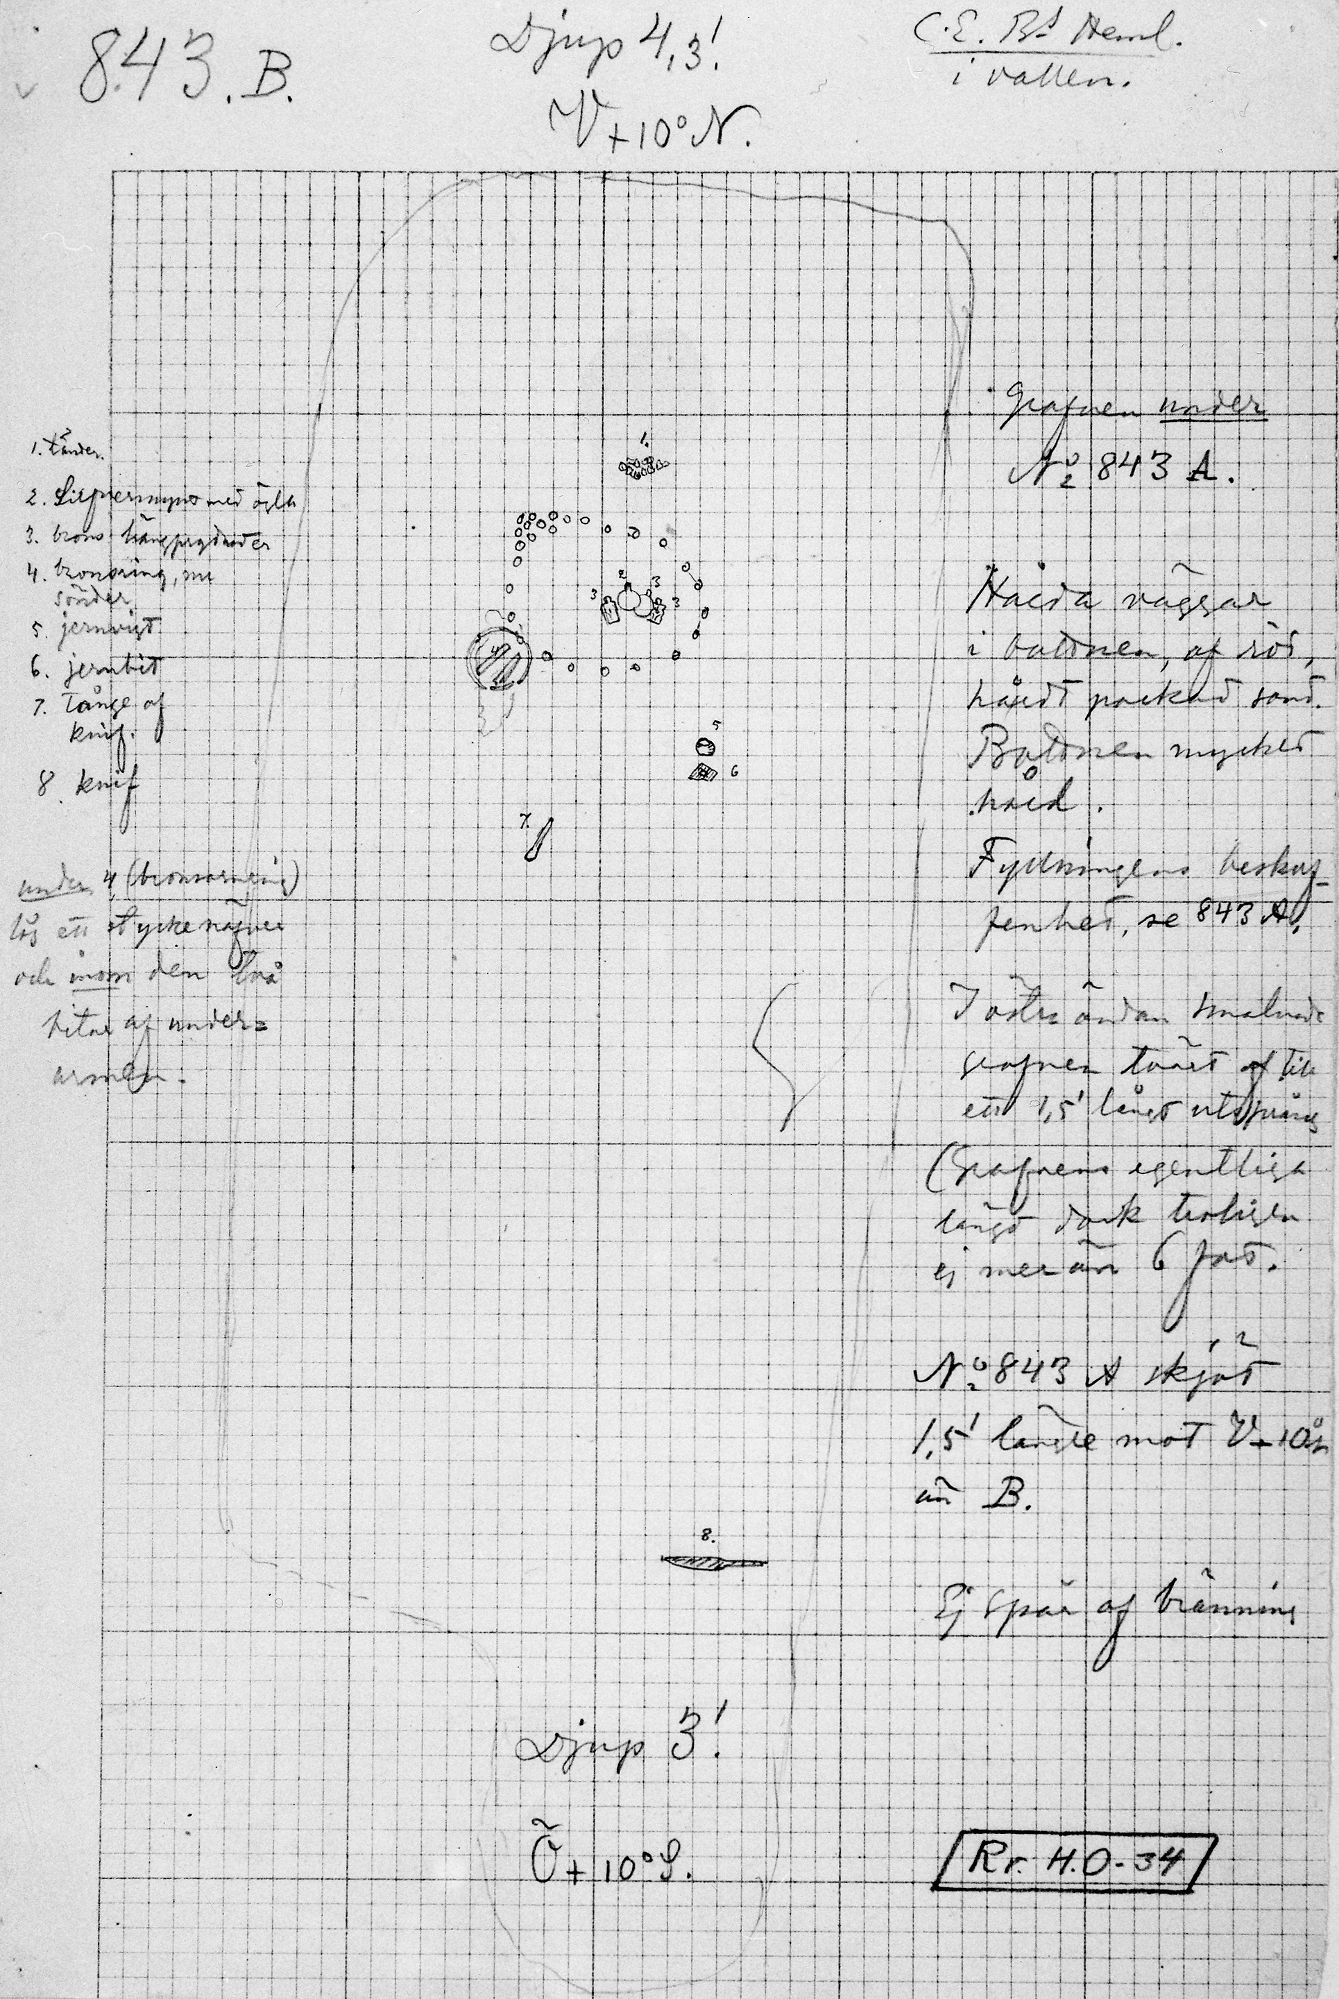 843.B.
Djup 4,3!
V+10°N.
C.E. Bd Heml.
i vallen.
1. tänder.
2. Silfvermynt med ögla
3. brons hängprydnader
4. bronsring, nu
sönder
5. jernvigt
6. jernbit
7. Tånge af
knif.
8 knif
under 4 (bronsarmring)
låg ett stycke näfver
och inom den två
bitar af under=
armen.
1.
2
3
3
3
4
5
6
7.
8.
Grafven under
No 843 A.
Hårda väggar
i bottnen, af röd,
hårdt packad sand.
Bottnen mycket
hård.
Fyllningens beskaf-
fenhet, se 843 A.
I östra ändan smalnade
grafven tvärt af till
ett 1,5' långt utsprång
(Grafvens egentliga
längd dock troligen
ej mer än 6 fot.
No 843 A sköt
1,5' längre mot V+10°N
än B.
Ej spår af bränning
Djup 3!
Ö+10°S.
Rr. H.O-34